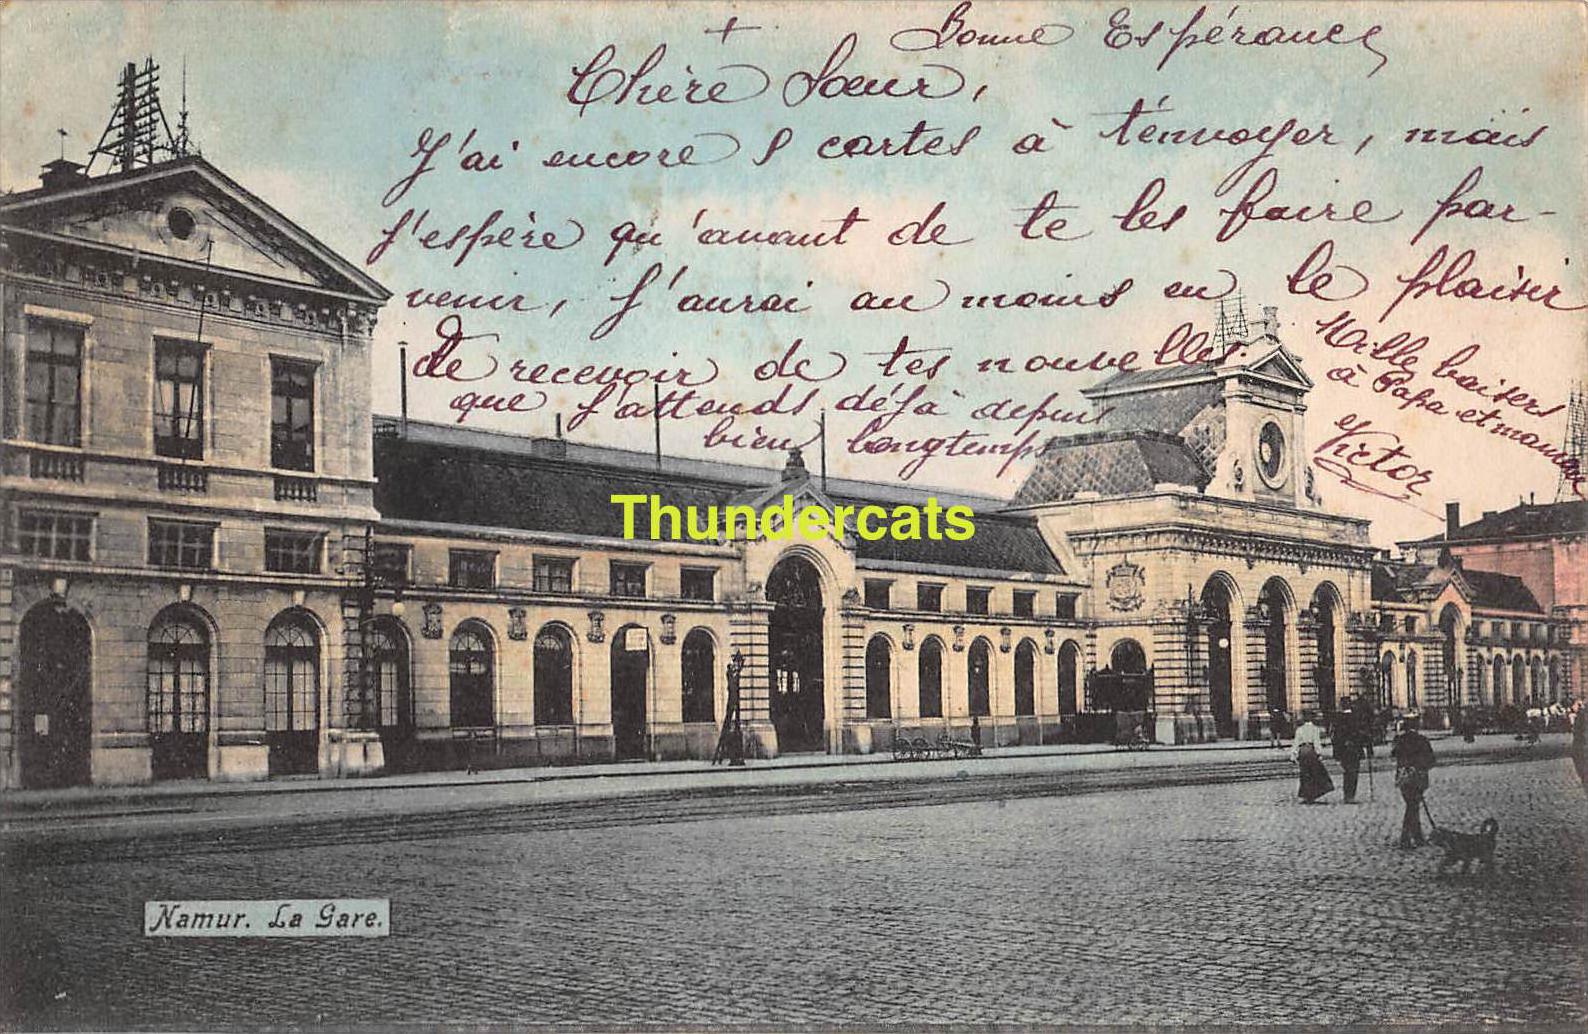 + Bonne Espérance
Chère Sœur,
J'ai encore 8 cartes à t'envoyer, mais
j'espère qu'avant de te les faire par-
venir, j'aurai au moins eu le plaisir
de recevoir de tes nouvelles.
que j'attends déjà depuis
bien longtemps
Mille baisers
à Papa et maman
Victor
Thundercats
Namur. La Gare.